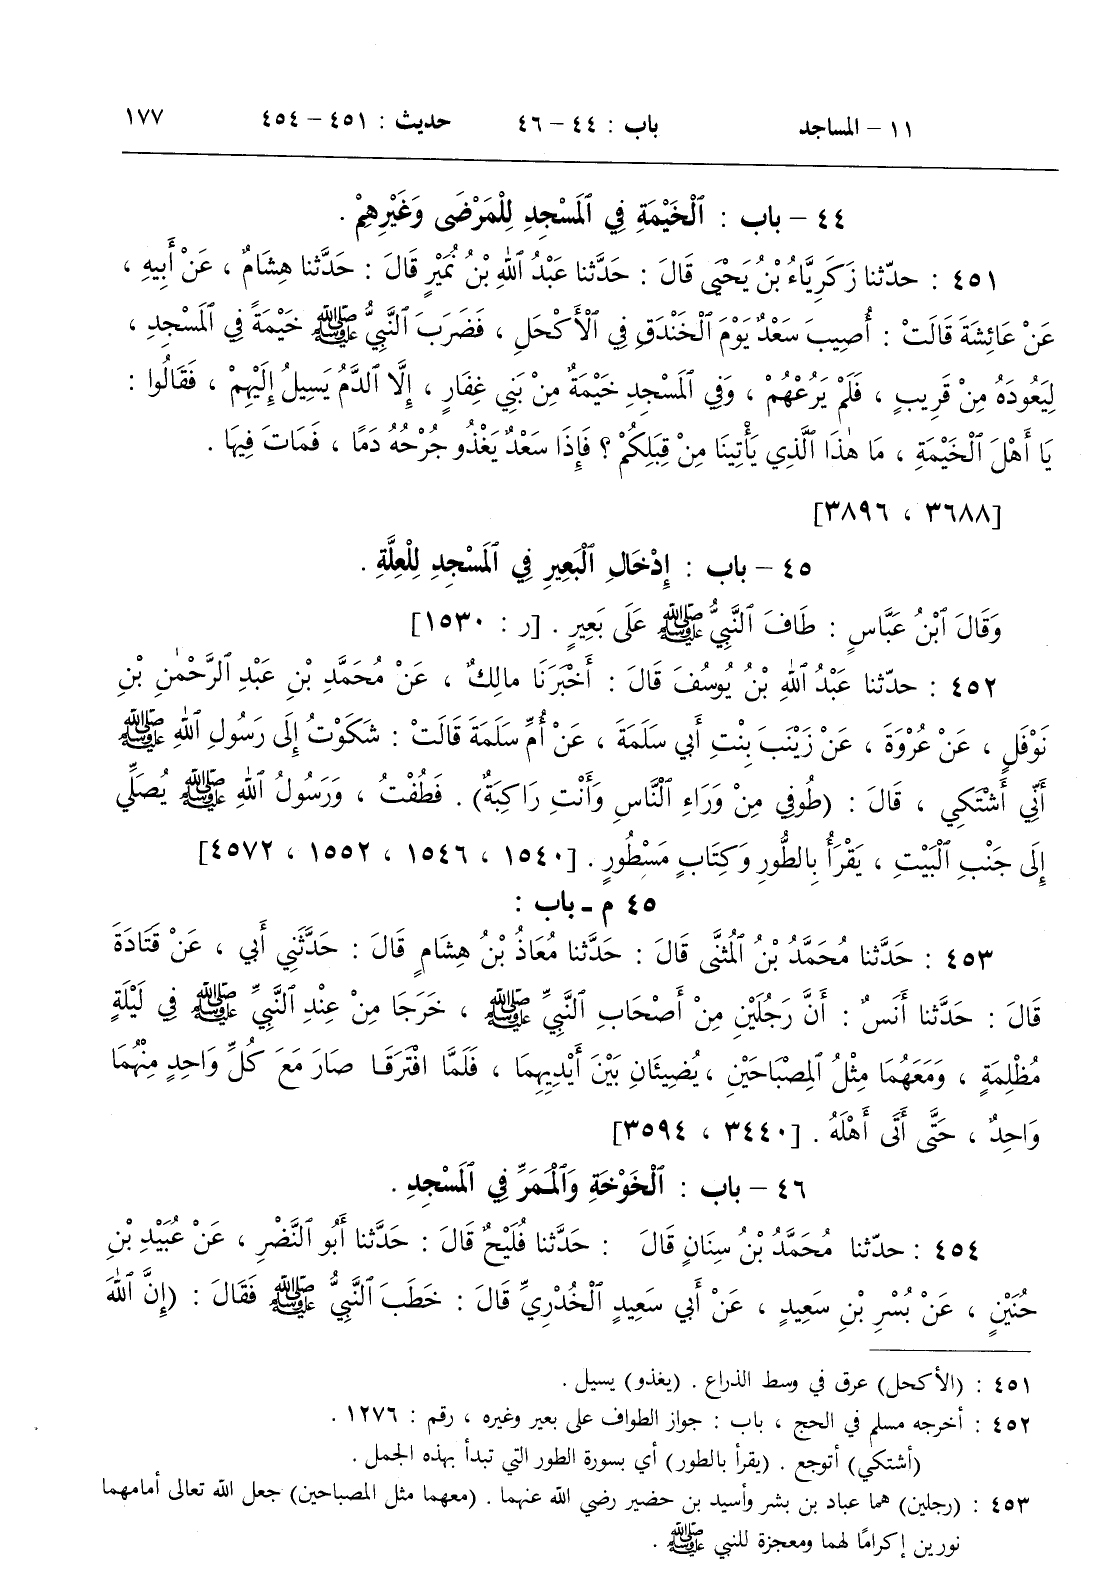 ١١ – المساجد باب : ٤٤ – ٤٦ حديث : ٤٥١ – ٤٥٤ ١٧٧
٤٤ – باب : ٱلْخَيْمَةِ فِي ٱلْمَسْجِدِ لِلْمَرْضَى وَغَيْرِهِمْ .
٤٥١ : حدّثنا زَكَرِيَّاءُ بْنُ يَحْيَى قَالَ : حَدَّثنا عَبْدُ ٱللهِ بْنُ نُمَيْرٍ قَالَ : حَدَّثنا هِشَامٌ ، عَنْ أَبِيهِ ،
عَنْ عَائِشَةَ قَالَتْ : أُصِيبَ سَعْدٌ يَوْمَ ٱلْخَنْدَقِ فِي ٱلْأَكْحَلِ ، فَضَرَبَ ٱلنَّبِيُّ ﷺ خَيْمَةً فِي ٱلْمَسْجِدِ ،
لِيَعُودَهُ مِنْ قَرِيبٍ ، فَلَمْ يَرُعْهُمْ ، وَفِي ٱلْمَسْجِدِ خَيْمَةٌ مِنْ بَنِي غِفَارٍ ، إِلَّا ٱلدَّمُ يَسِيلُ إِلَيْهِمْ ، فَقَالُوا :
يَا أَهْلَ ٱلْخَيْمَةِ ، مَا هٰذَا ٱلَّذِي يَأْتِينَا مِنْ قِبَلِكُمْ ؟ فَإِذَا سَعْدٌ يَغْذُو جُرْحُهُ دَمًا ، فَمَاتَ فِيهَا .
[٣٦٨٨ ، ٣٨٩٦]
٤٥ – باب : إِدْخَالِ ٱلْبَعِيرِ فِي ٱلْمَسْجِدِ لِلْعِلَّةِ .
وَقَالَ ٱبْنُ عَبَّاسٍ : طَافَ ٱلنَّبِيُّ ﷺ عَلَى بَعِيرٍ . [ر : ١٥٣٠]
٤٥٢ : حدّثنا عَبْدُ ٱللهِ بْنُ يُوسُفَ قَالَ : أَخْبَرَنَا مالِكٌ ، عَنْ مُحَمَّدِ بْنِ عَبْدِ ٱلرَّحْمٰنِ بْنِ
نَوْفَلٍ ، عَنْ عُرْوَةَ ، عَنْ زَيْنَبَ بِنْتِ أَبي سَلَمَةَ ، عَنْ أُمِّ سَلَمَةَ قَالَتْ : شَكَوْتُ إِلَى رَسُولِ ٱللهِ ﷺ
أَنِّي أَشْتَكِي ، قَالَ : (طُوفِي مِنْ وَرَاءِ ٱلنَّاسِ وَأَنْتِ رَاكِبَةٌ) . فَطُفْتُ ، وَرَسُولُ ٱللهِ ﷺ يُصَلِّي
إِلَى جَنْبِ ٱلْبَيْتِ ، يَقْرَأُ بِالطُّورِ وَكِتَابٍ مَسْطُورٍ . [١٥٤٠ ، ١٥٤٦ ، ١٥٥٢ ، ٤٥٧٢]
٤٥ م ـ باب :
٤٥٣ : حَدَّثنا مُحَمَّدُ بْنُ ٱلْمُثَنَّى قَالَ : حَدَّثنا مُعَاذُ بْنُ هِشَامٍ قَالَ : حَدَّثَنِي أَبي ، عَنْ قَتَادَةَ
قَالَ : حَدَّثنا أَنَسٌ : أَنَّ رَجُلَيْنِ مِنْ أَصْحَابِ ٱلنَّبِيِّ ﷺ ، خَرَجَا مِنْ عِنْدِ ٱلنَّبِيِّ ﷺ فِي لَيْلَةٍ
مُظْلِمَةٍ ، وَمَعَهُمَا مِثْلُ ٱلْمِصْبَاحَيْنِ ، يُضِيئَانِ بَيْنَ أَيْدِيهِمَا ، فَلَمَّا افْتَرَقَا صَارَ مَعَ كُلِّ وَاحِدٍ مِنْهُمَا
وَاحِدٌ ، حَتَّى أَتَى أَهْلَهُ . [٣٤٤٠ ، ٣٥٩٤]
٤٦ – باب : ٱلْخَوْخَةِ وَٱلْمَمَرِّ فِي ٱلْمَسْجِدِ .
٤٥٤ : حدّثنا مُحَمَّدُ بْنُ سِنَانٍ قَالَ : حَدَّثنا فُلَيْحٌ قَالَ : حَدَّثنا أَبُو ٱلنَّضْرِ ، عَنْ عُبَيْدِ بْنِ
حُنَيْنٍ ، عَنْ بُسْرِ بْنِ سَعِيدٍ ، عَنْ أَبي سَعِيدٍ ٱلْخُدْرِيِّ قَالَ : خَطَبَ ٱلنَّبِيُّ ﷺ فَقَالَ : (إِنَّ ٱللهَ
٤٥١ : (الأكحل) عرق في وسط الذراع . (يغذو) يسيل .
٤٥٢ : أخرجه مسلم في الحج ، باب : جواز الطواف على بعير وغيره ، رقم : ١٢٧٦ .
(أشتكي) أتوجع . (يقرأ بالطور) أي بسورة الطور التي تبدأ بهذه الجمل .
٤٥٣ : (رجلين) هما عباد بن بشر وأسيد بن حضير رضي الله عنهما . (معهما مثل المصباحين) جعل الله تعالى أمامهما
نورين إكرامًا لهما ومعجزة للنبي ﷺ .